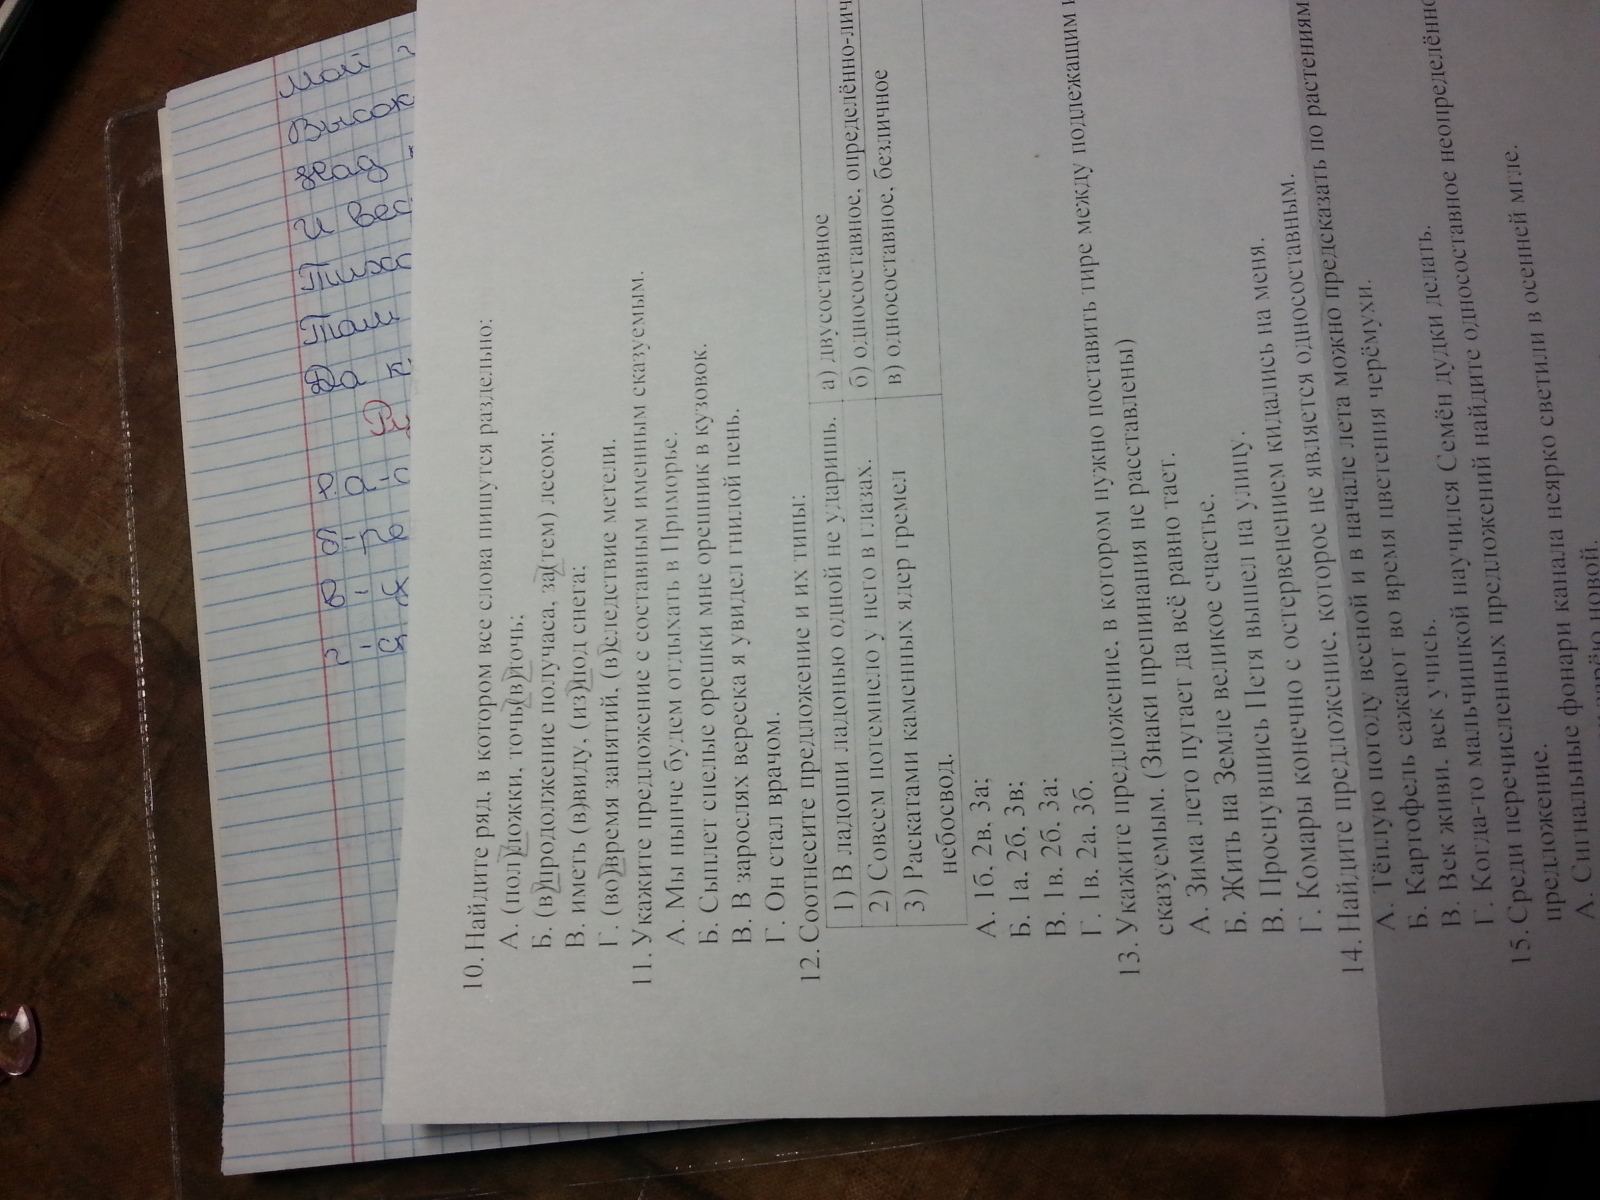 Мой
Высок
над
и вес
Тихо
Там
Да к
а-с
б-
в-
г-
10. Найдите ряд, в котором все слова пишутся раздельно:
А. (пол)ложки, точь(в)точь;
Б. (в)продолжение получаса, за(тем) лесом;
В. иметь (в)виду, (из)под снега;
Г. (во)время занятий, (в)следствие метели.
11. Укажите предложение с составным именным сказуемым.
А. Мы нынче будем отдыхать в Приморье.
Б. Сыплет спелые орешки мне орешник в кузовок.
В. В зарослях вереска я увидел гнилой пень.
Г. Он стал врачом.
12. Соотнесите предложение и их типы:
1) В ладоши ладонью одной не ударишь. а) двусоставное
2) Совсем потемнело у него в глазах. б) односоставное, определённо-лич
3) Раскатами каменных ядер гремел в) односоставное, безличное
небосвод.
А. 1б, 2в, 3а;
Б. 1а, 2б, 3в;
В. 1в, 2б, 3а;
Г. 1в, 2а, 3б.
13. Укажите предложение, в котором нужно поставить тире между подлежащим и
сказуемым. (Знаки препинания не расставлены)
А. Зима лето пугает да всё равно тает.
Б. Жить на Земле великое счастье.
В. Проснувшись Петя вышел на улицу.
Г. Комары конечно с остервенением кидались на меня.
14. Найдите предложение, которое не является односоставным.
А. Тёплую погоду весной и в начале лета можно предсказать по растениям
Б. Картофель сажают во время цветения черёмухи.
В. Век живи, век учись.
Г. Когда-то мальчишкой научился Семён дудки делать.
15. Среди перечисленных предложений найдите односоставное неопределённо
предложение.
А. Сигнальные фонари канала неярко светили в осенней мгле.
новой.